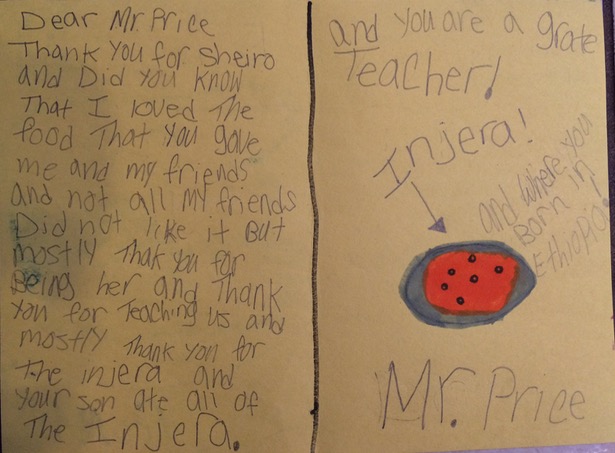 Dear Mr. Price
Thank you for Sheiro
and Did you know
That I loved The
food That you gave
me and my friends
and not all my friends
Did not like it But
mostly Thak you for
Being her and Thank
you for Teaching us and
mostly Thank you for
The injera and
your son ate all of
The Injera.
and you are a grate
Teacher!
Injera!
and where you
Born in
Ethiopia!
Mr. Price